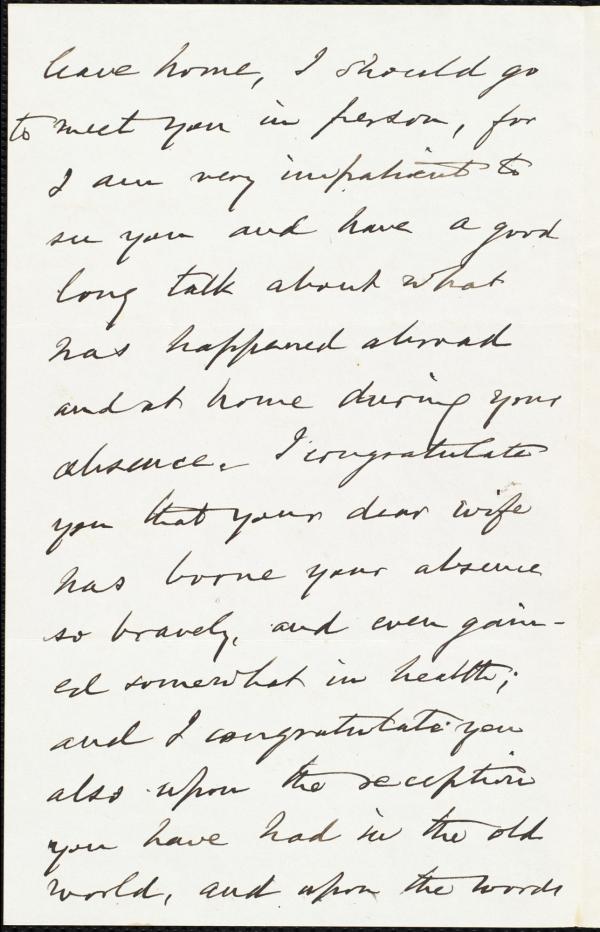 leave home, I should go
to meet you in person, for
I am very impatient to
see you and have a good
long talk about what
has happened abroad
and at home during your
absence. I congratulate
you that your dear wife
has borne your absence
so bravely, and even gain-
ed somewhat in health;
and I congratulate you
also upon the reception
you have had in the old
world, and upon the words